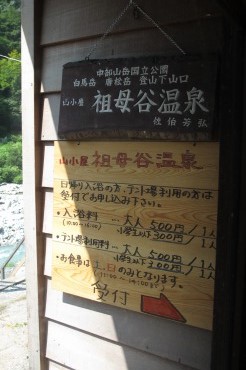 中部山岳国立公園
白馬岳 唐松岳 登山下山口
山小屋 祖母谷温泉
佐伯芳弘
山小屋 祖母谷温泉
日帰り入浴の方、テント場利用の方は
受付でお申し込み下さい。
・入浴料 … 大人 500円/1人
小学生以下 300円/1人
・テント場利用料 … 大人 500円/1人
小学生以下 300円/1人
・お食事は のみとなります。
受付